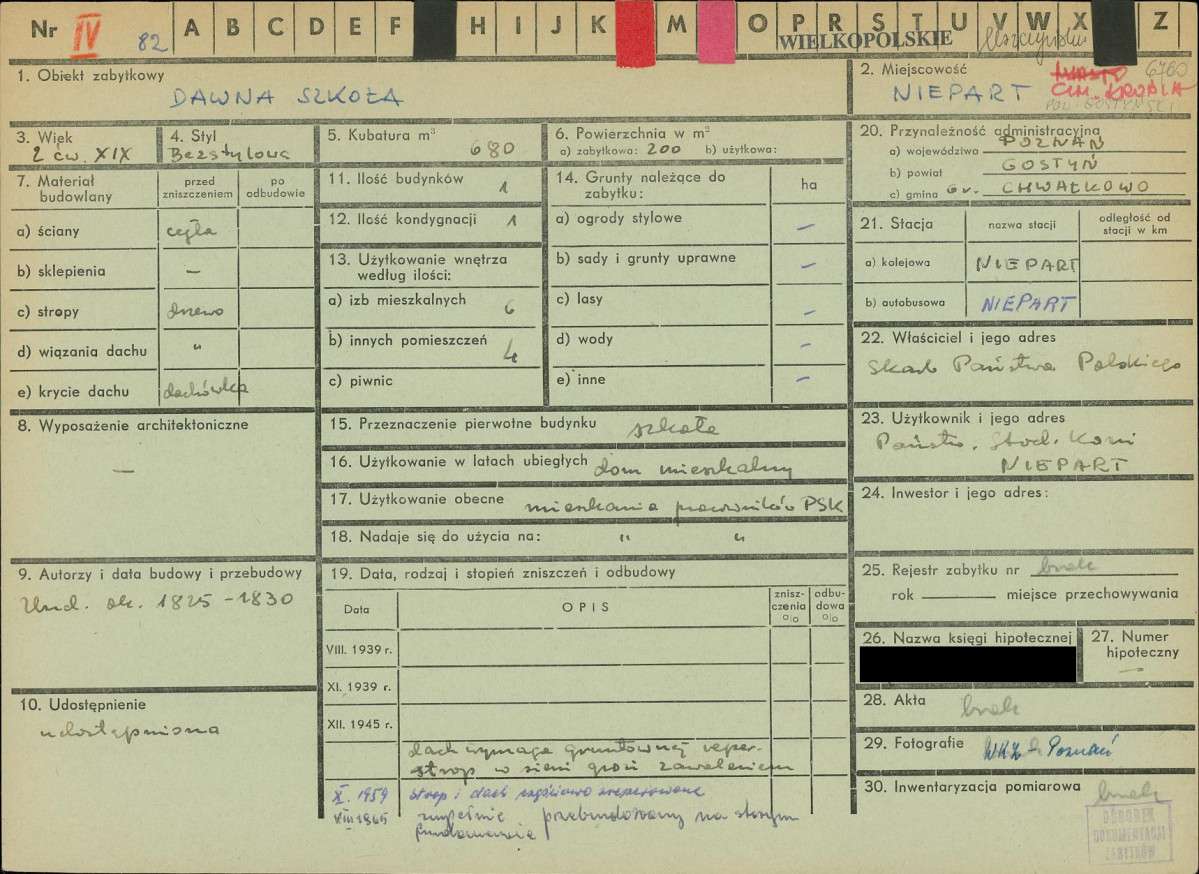 Nr IV 82 A B C D E F H I J K M O P R S T U V W X Z
WIELKOPOLSKIE
1. Obiekt zabytkowy
DAWNA SZKOŁA
2. Miejscowość
NIEPART
MIASTO 6760
GM. KROBIA
POW. GOSTYŃSKI
3. Wiek
2 ćw. XIX
4. Styl
Bezstylowa
5. Kubatura m³
680
6. Powierzchnia w m²
a) zabytkowa: 200 b) użytkowa:
7. Materiał budowlany
przed zniszczeniem
po odbudowie
a) ściany cegła
b) sklepienia —
c) stropy drzewo
d) wiązania dachu "
e) krycie dachu dachówka
8. Wyposażenie architektoniczne
—
9. Autorzy i data budowy i przebudowy
Bud. ok. 1825 - 1830
10. Udostępnienie
udostępniona
11. Ilość budynków 1
12. Ilość kondygnacji 1
13. Użytkowanie wnętrza
według ilości:
a) izb mieszkalnych 6
b) innych pomieszczeń 4
c) piwnic
14. Grunty należące do
zabytku:
ha
a) ogrody stylowe —
b) sady i grunty uprawne —
c) lasy —
d) wody —
e) inne —
15. Przeznaczenie pierwotne budynku szkoła
16. Użytkowanie w latach ubiegłych dom mieszkalny
17. Użytkowanie obecne mieszkania pracowników PSK
18. Nadaje się do użycia na: " "
19. Data, rodzaj i stopień zniszczeń i odbudowy
Data
OPIS
znisz-
czenia
%
odbu-
dowa
%
VIII. 1939 r.
XI. 1939 r.
XII. 1945 r.
dach wymaga gruntownej reper.
strop w sieni grozi zawaleniem
X. 1959 strop i dach częściowo zreperowane
VIII 1965 przebudowany na starym
fundamencie
20. Przynależność administracyjna
a) województwo POZNAŃ
b) powiat GOSTYŃ
c) gmina Gr. CHWAŁKOWO
21. Stacja
nazwa stacji
odległość od
stacji w km
a) kolejowa NIEPART
b) autobusowa NIEPART
22. Właściciel i jego adres
Skarb Państwa Polskiego
23. Użytkownik i jego adres
Państw. Stad. Koni
NIEPART
24. Inwestor i jego adres:
25. Rejestr zabytku nr brak
rok miejsce przechowywania
26. Nazwa księgi hipotecznej
27. Numer
hipoteczny
—
28. Akta brak
29. Fotografie WKZ - Poznań
30. Inwentaryzacja pomiarowa brak
OŚRODEK
DOKUMENTACJI
ZABYTKÓW